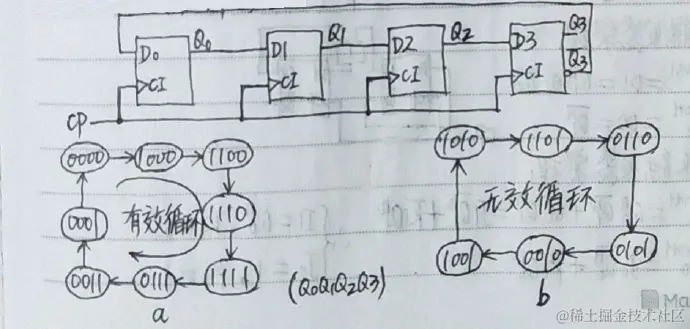 Q3
D0 Q0 D1 Q1 D2 Q2 D3
CI CI CI CI Q̅3
CP
0000 1000 1100
1010 1101 0110
0001 有效循环 1110
无效循环
0011 0111 1111 (Q0Q1Q2Q3)
1001 0010 0101
a b
Ma
@稀土掘金技术社区